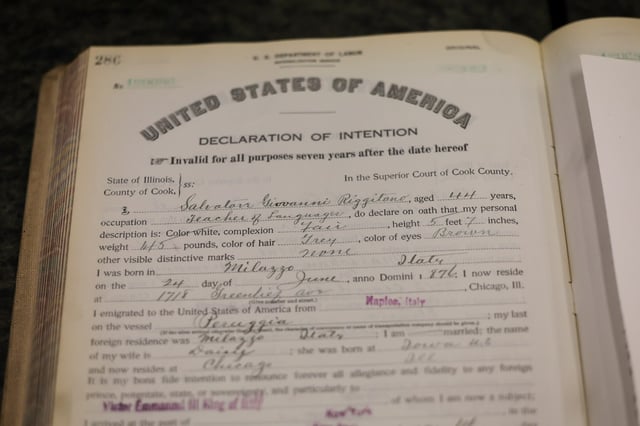 286
U. S. DEPARTMENT OF LABOR
ORIGINAL
No.
UNITED STATES OF AMERICA
DECLARATION OF INTENTION
Invalid for all purposes seven years after the date hereof
State of Illinois,
County of Cook, ss:
In the Superior Court of Cook County.
I, Salvatore Giovanni Rizzitano, aged 44 years,
occupation Teacher of Languages, do declare on oath that my personal
description is: Color white, complexion fair, height 5 feet 7 inches,
weight 145 pounds, color of hair Grey, color of eyes Brown
other visible distinctive marks none
I was born in Milazzo Italy
on the 24 day of June, anno Domini 1876; I now reside
at 1718 Greenleaf Ave, Chicago, Ill.
(Give number and street.)
I emigrated to the United States of America from Naples, Italy
on the vessel Peruggia; my last
foreign residence was Milazzo Italy; I am married; the name
of my wife is Daisy; she was born at Iowa U.S
and now resides at Chicago Ill
It is my bona fide intention to renounce forever all allegiance and fidelity to any foreign
prince, potentate, state, or sovereignty, and particularly to
Victor Emmanuel III King of Italy, of whom I am now a subject;
I arrived at the port of New York, in the